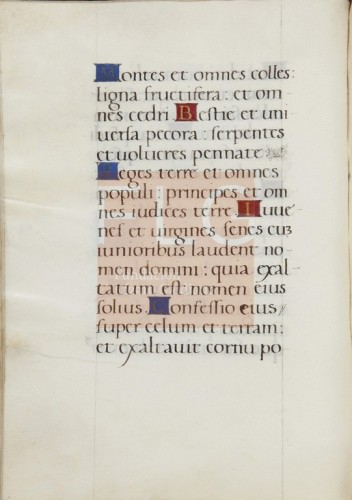 Montes et omnes colles:
ligna fructifera: et om
nes cedri. Bestie et uni
uersa pecora: serpentes
et uolucres pennate.
Reges terre et omnes
populi: principes et om
nes iudices terre. Iuue
nes et uirgines senes cuz
iunioribus laudent no
men domini: quia exal
tatum est nomen eius
solius. Confessio eius
super celum et terram:
et exaltauit cornu po